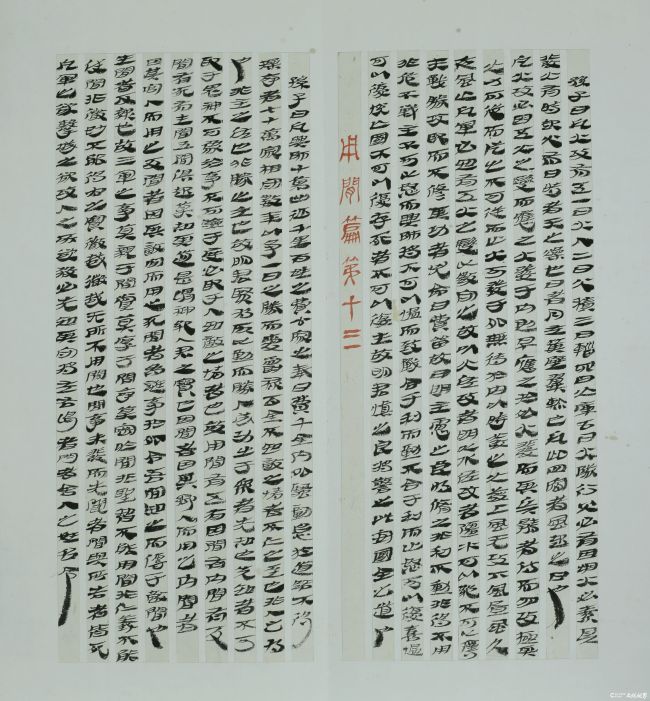 孫子曰凡火攻有五一曰火人二曰火積三曰輜四曰火庫五曰火隊行火必有因煙火必素具
發火有時起火有日時者天之燥也日者月在箕壁翼軫也凡此四宿者風起之日也
凡火攻必因五火之變而應之火發于内則早應之於外火發而其兵靜者待而勿攻極其
火力可從而從之不可從而止火可發于外無待於内以時發之火發上風無攻下風晝風久
夜風止凡軍必知有五火之變以數守之故以火佐攻者明以水佐攻者強水可以絕不可以奪
夫戰勝攻取而不修其功者凶命曰費留故曰明主慮之良將修之非利不動非得不用
非危不戰主不可以怒而興師將不可以慍而致戰合于利而動不合于利而止怒可以復喜慍
可以復悅亡國不可以復存死者不可以復生故明君慎之良將警之此安國全軍之道也
用間篇第十三
孫子曰凡興師十萬出征千里百姓之費公家之奉日費千金内外騷動怠於道路不得
操事者七十萬家相守數年以爭一日之勝而愛爵祿百金不知敵之情者不仁之至也非人之將
也非主之佐也非勝之主也故明君賢將所以動而勝人成功出于眾者先知也先知者不可
取于鬼神不可象于事不可驗于度必取于人知敵之情者也故用間有五有因間有内間有反
間有死間有生間五間俱起莫知其道是謂神紀人君之寶也因間者因其鄉人而用之内間者
因其官人而用之反間者因其敵間而用之死間者為誑事於外令吾間知之而傳于敵間也
生間者反報也故三軍之事莫親于間賞莫厚于間事莫密于間非聖智不能用間非仁義不能
使間非微妙不能得間之實微哉微哉無所不用間也間事未發而先聞者間與所告者皆死
凡軍之所欲擊城之所欲攻人之所欲殺必先知其守將左右謁者門者舍人之姓名令